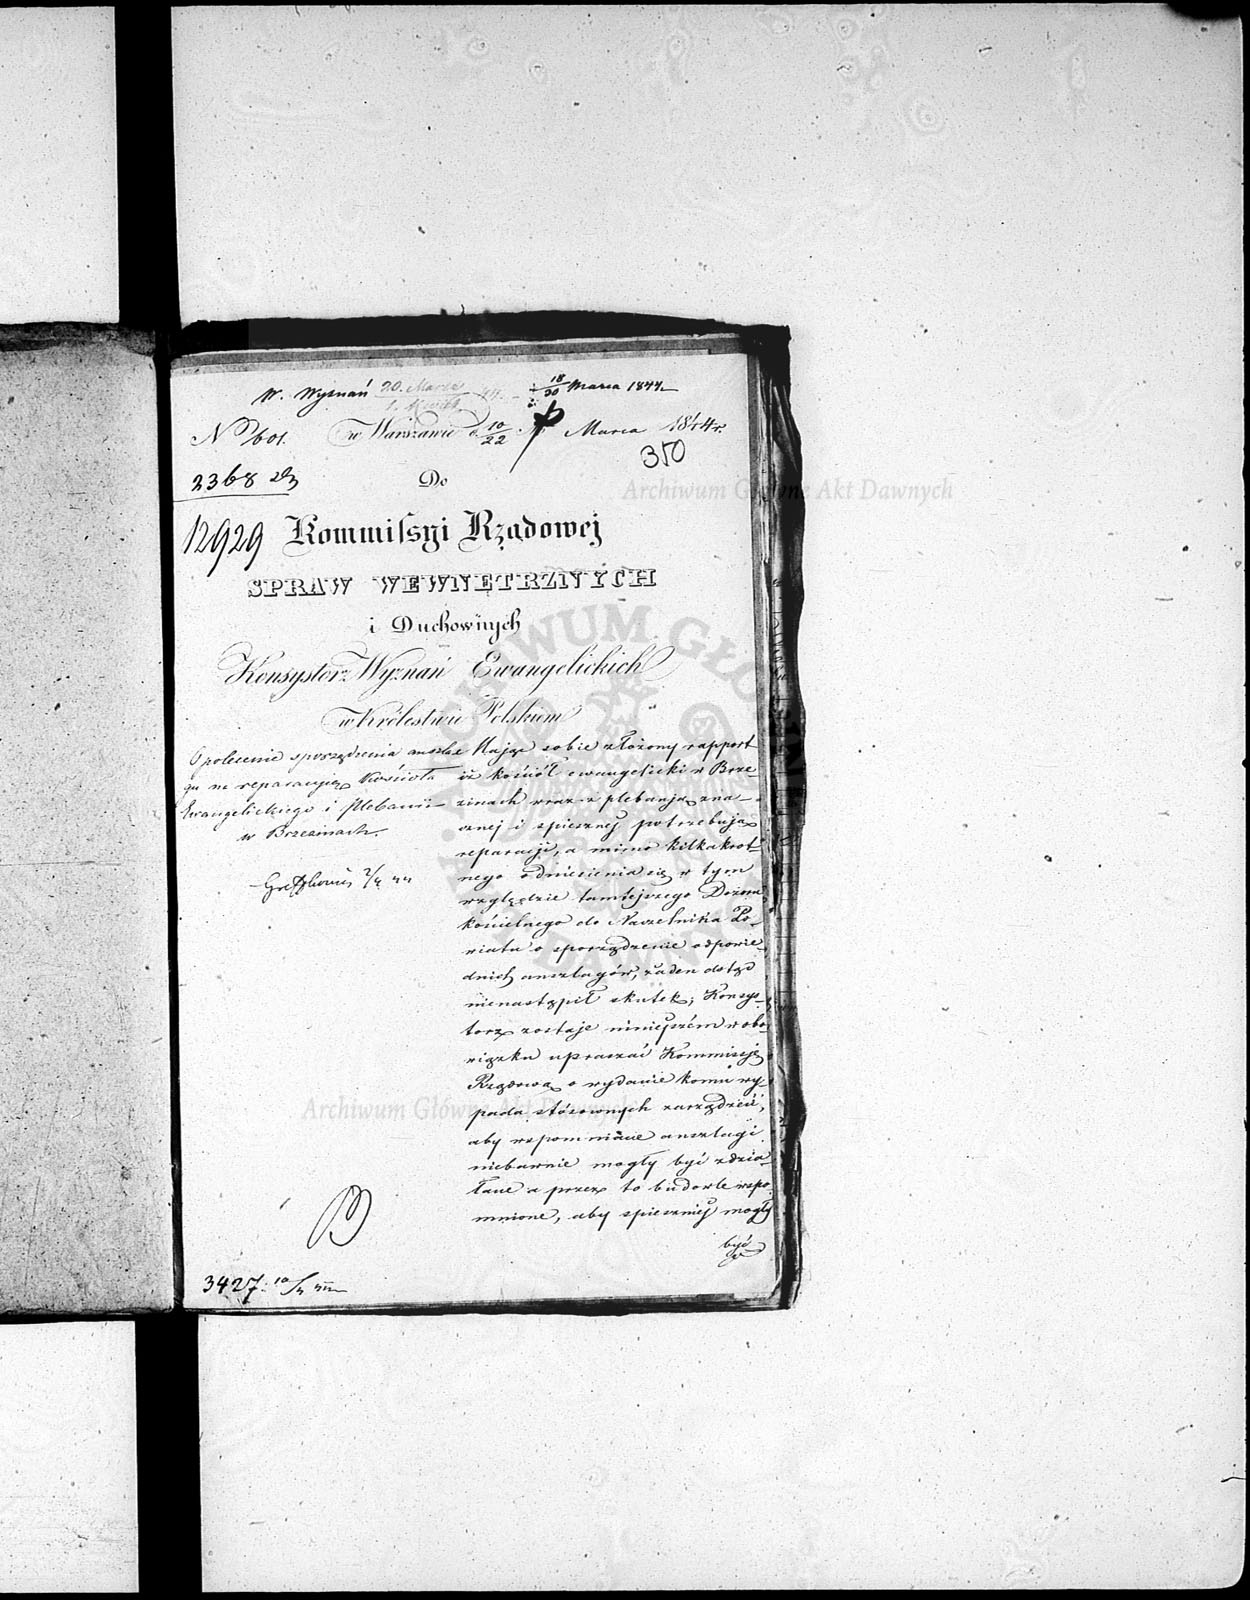 W. Wyznań 20. Marca 18/30 Marca 1844
No 601. w Warszawie d. 10/22 Marca 1844 r.
350
2368
Do
12929 Kommissyi Rządowej
SPRAW WEWNĘTRZNYCH
i Duchownych
Konsystorz Wyznań Ewangelickich
w Królestwie Polskiem
O polecenie sporządzenia anszla
gu na reparacyią Kościoła
Ewangelickiego i Plebanii
w Brzezinach.
Mając sobie złożony rapport
iż kościół ewangelicki w Brze-
zinach wraz z plebanją zna-
cznej i spiesznej potrzebują
reparacji, a mimo kilkakrot-
nego odniesienia się w tym
względzie tamtejszego Dozoru
kościelnego do Naczelnika Po-
wiatu o sporządzenie odpowie-
dnich anszlagów, żaden dotąd
nienastąpił skutek; Konsys-
torz zostaje niniejszém w obo-
wiązku upraszać Kommissję
Rządową o wydanie komu wy-
pada stósownych zarządzeń,
aby wspomniane anszlagi
niebawnie mogły być zdzia-
łane a przez to budowle wspo-
mnione, aby spieszniej mogły
być
3427. 10/4 44
Archiwum Główne Akt Dawnych
Archiwum Główne Akt Dawnych
ARCHIWUM GŁÓWNE AKT DAWNYCH